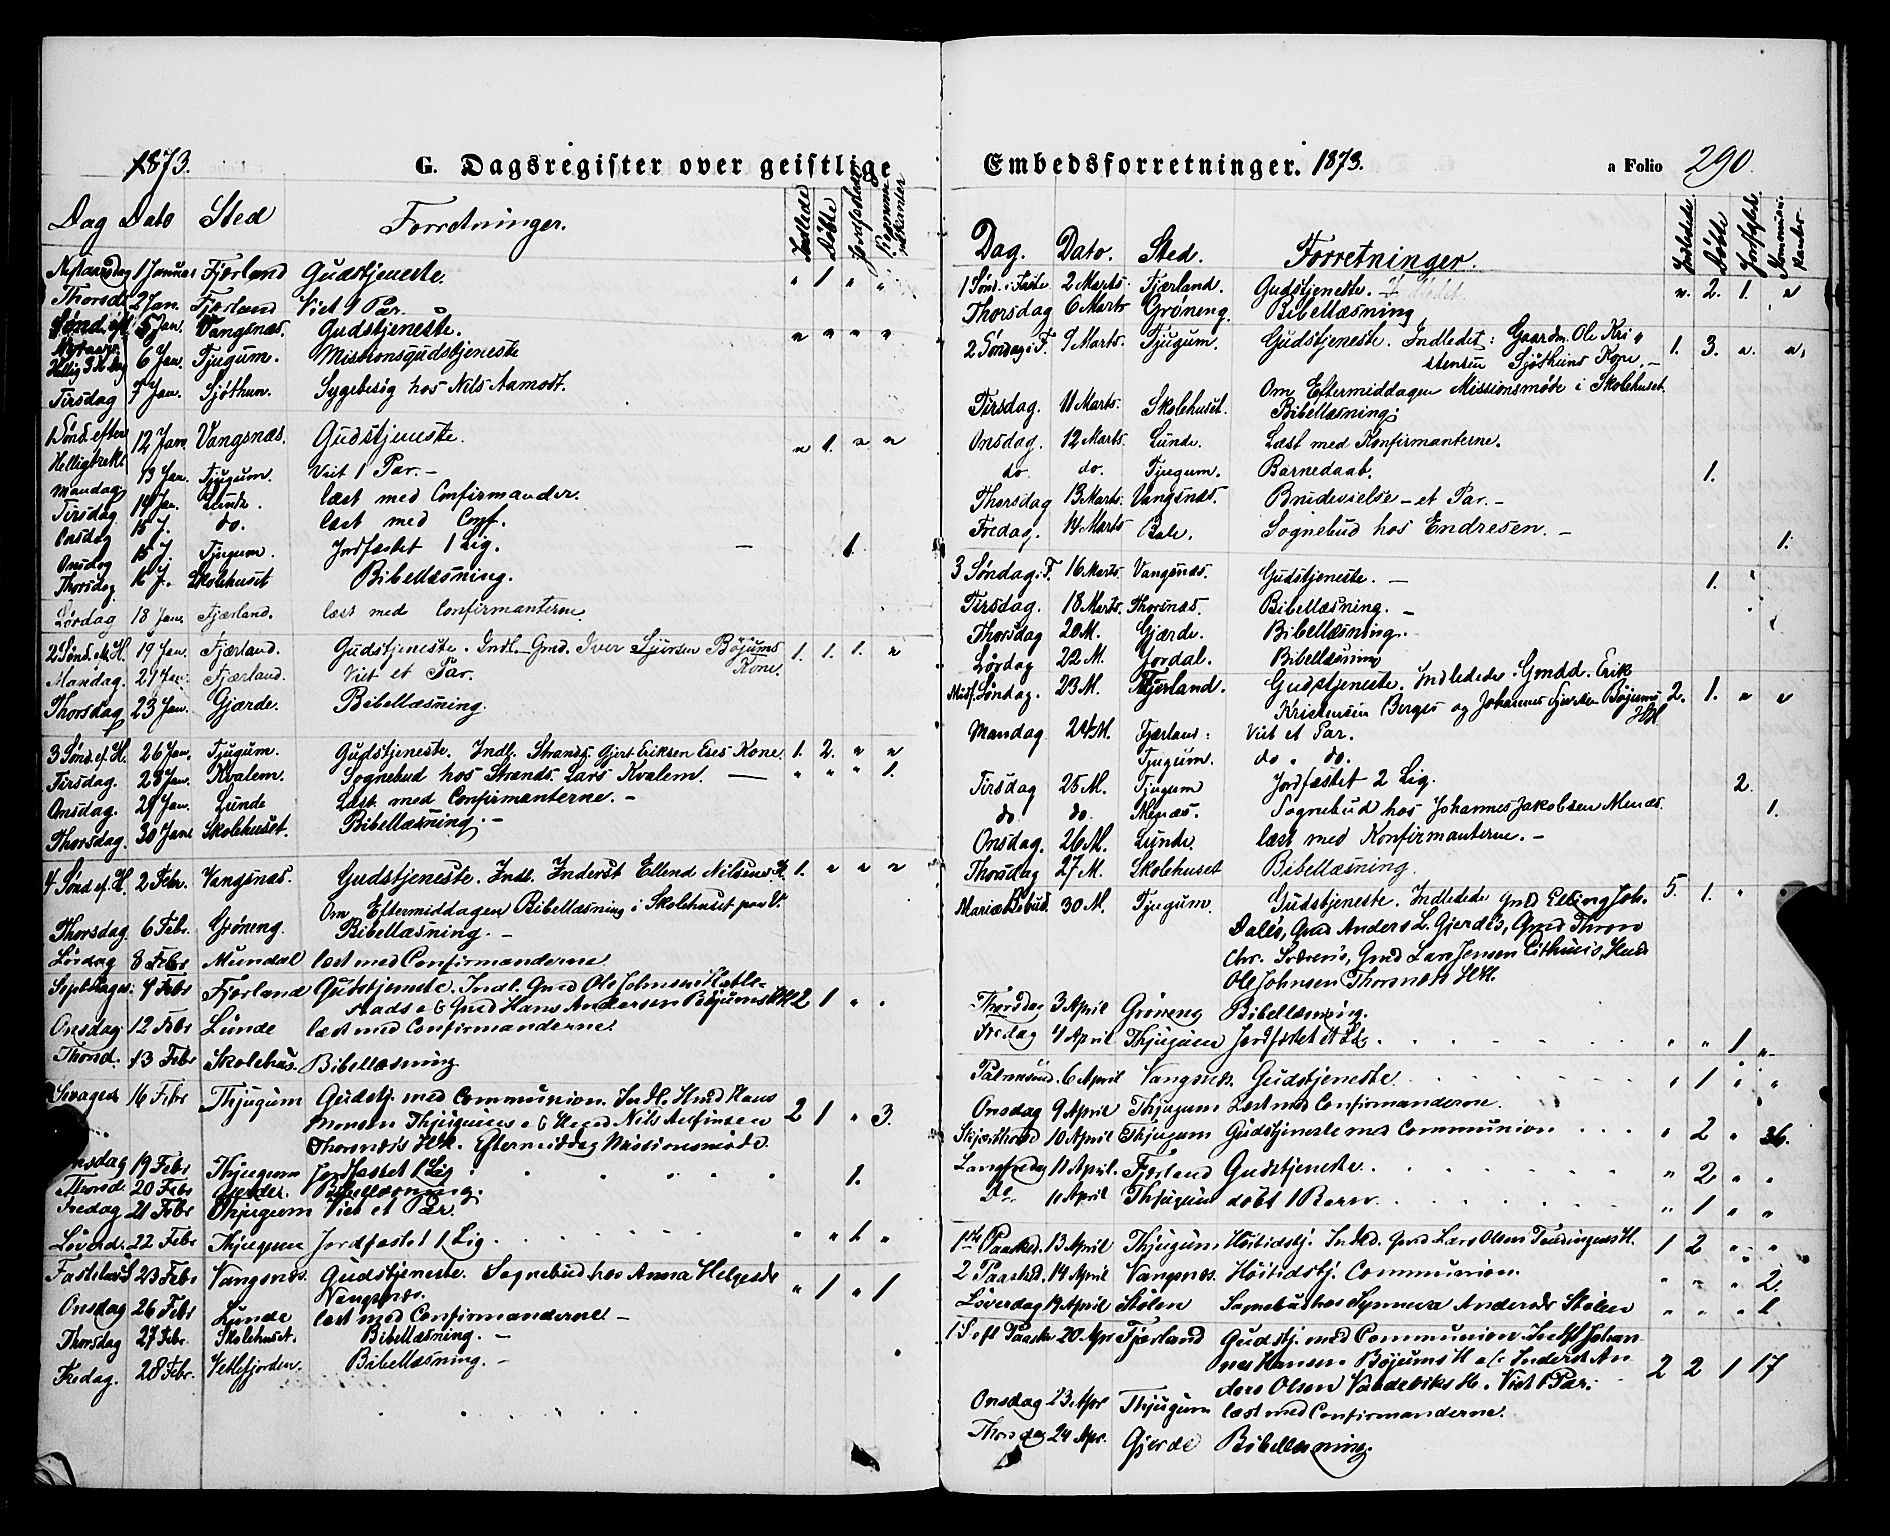 1873. G. Dagsregister over geistlige
Dag Dato Sted Forretninger. Indlede Døbte Jordfæstede Kommunikanter
Nytaarsdag 1 Januar Fjærland Gudstjeneste. " 1 " "
Thorsd. 2 Jan. Fjærland Viet 1 Par.
Sønd. eft. Nytaar 5 Jan. Vangsnæs. Gudstjeneste. " " " "
Hellig 3 K dag 6 Jan. Tjugum. Missionsgudstjeneste
Tirsdag 7 Jan. Sjøthun. Sygebesøg hos Nils Aamodt.
1 Sønd. efter Helligtrekk. 12 Jan. Vangsnæs. Gudstjeneste. " 1. " "
Mandag 13 Jan. Tjugum. Viet 1 Par. –
Tirsdag 14 Jan. Lunde. læst med Confirmander.
Onsdag 15 J. do. læst med Conf.
Onsdag 15 J. Tjugum. Jordfæstet 1 Lig. – 1.
Thorsdag 16 J. Skolehuset Bibellæsning.
Lørdag 18 Jan. Fjærland. læst med Confirmanterne
2 Sønd. e. H. 19 Jan. Fjærland. Gudstjeneste. Indl. Gmd. Iver Sjursen Bøjums Kone. 1. 1. 1. "
Mandag. 21 Jan. Fjærland. Viet et Par.
Thorsdag 23 Jan. Gjærde. Bibellæsning.
3 Sønd. ef. H. 26 Jan. Tjugum. Gudstjeneste. Indl. Strands. Gjert Eriksen Eses Kone. 1. 2. " "
Tirsdag. 28 Jan. Kvalem. Sognebud hos Strands. Lars Kvalem. – " " " 1.
Onsdag. 29 Jan. Lunde Læst med Confirmanterne. –
Thorsdag. 30 Jan. Skolehuset. Bibellæsning. –
4 Sønd. ef. H. 2 Febr. Vangsnæs. Gudstjeneste. Indl. Inderst Ellend Nilsens K. 1. " " "
Om Eftermiddagen Bibellæsning i Skolehuset paa V.
Thorsdag. 6 Febr. Grøneng. Bibellæsning. –
Lørdag 8 Febr Mundal læst med Confirmanderne
Septuages. 9 Febr Fjærland Gudstjeneste. Indl. Gmd Ole Johnsen Hatle-
stads & Gmd Hans Andersen Bøjums HH 2 1 " "
Onsdag 12 Febr Lunde læst med Confirmanderne.
Thorsd. 13 Febr Skolehus. Bibellæsning
Sexages 16 Febr Thjugum Gudstj. med Communion. Indl. Hmd Hans
Monsen Thjugums & Hmd Nils Anfinsen 2 1 " 3.
Thorsnæs HH. Eftermiddag Missionsmøde.
Onsdag 19 Febr Thjugum Jordfæstet 1 Lig 1.
Thorsd. 20 Febr Gjerde. Bibellæsning.
Fredag 21 Febr Thjugum Viet et Par.
Løverd. 22 Febr Thjugum Jordfæstet 1 Lig. " " 1. "
Fastelavn S 23 Febr Vangsnæs. Gudstjeneste. Sognebud hos Anna Helgesdr Vangsnæs. " 1 " 1
Onsdag 26 Febr Lunde læst med Confirmanderne –
Thorsdag 27 Febr. Skolehuset. Bibellæsning. –
Fredag. 28 Febr. Vetlefjorden. Bibellæsning. –
Embedsforretninger. 1873. a Folio 290.
Dag. Dato. Sted. Forretninger. Indledede Døbte Jordfæstet Kommunikanter
1 Sønd. i Faste 2 Marts. Fjærland. Gudstjeneste. " 2. 1. "
Thorsdag 6 Marts Grøneng. Bibellæsning
2 Søndag i F. 9 Marts. Tjugum. Gudstjeneste. Indledet: Gaardm. Ole Kri-
stensen Sjøthuns Kone. – 1. 3. " "
Om Eftermiddagen Missionsmøde i Skolehuset.
Tirsdag. 11 Marts. Skolehuset. Bibellæsning.
Onsdag. 12 Marts. Lunde. Læst med Konfirmanterne.
do. do. Tjugum. Barnedaab. 1.
Thorsdag 13 Marts. Vangsnæs. Brudevielse – et Par. –
Fredag. 14 Marts Bale. Sognebud hos Endresen. – 1.
3 Søndag i F. 16 Marts. Vangsnæs. Gudstjeneste. – 1.
Tirsdag. 18 Marts. Thorsnæs. Bibellæsning. –
Thorsdag 20 M. Gjærde. Bibellæsning.
Lørdag 22 M. Jordal. Bibellæsning
Midf. Søndag. 23 M. Fjærland. Gudstjeneste. Indledede. Gmdd. Erik
Kristensen Berges og Johannes Bøjums HH. 2. 1. " "
Mandag 24 M. Fjærland: Viet et Par.
Tjugum. do " do.
Tirsdag 25 M. Tjugum Jordfæstet 2 Lig. 2.
do. do. Menæs. Sognebud hos Johannes Jakobsen Menæs. 1.
Onsdag. 26 M. Lunde. læst med Konfirmanterne. –
Thorsdag 27 M. Skolehuset Bibellæsning.
Mariæ Bebud. 30 M. Tjugum. Gudstjeneste. Indledede Gmd Elling Joh. 5. 1. "
Dales, Gmd Anders L. Gjerdes, Gmd Thron
Chr. Sværens, Gmd Lars Jensen Eithuns, Hmd
Ole Johnsen Thorsnæs HH.
Thorsdag 3 April Grøneng Bibellæsning.
Fredag 4 April Thjugum Jordfæstet et Lig. " " 1 "
Palmesønd. 6 April Vangsnæs. Gudstjeneste " 1 " "
Onsdag 9 April Thjugum Læst med Confirmanderne.
Skjærthorsd 10 April Thjugum Gudstjeneste med Communion " 2 " 36.
Langfredag 11 April. Fjærland Gudstjeneste. " 2 " "
Do. 11 April Thjugum døbt 1 Barn. " 1 " "
1ste Paasked. 13 April Thjugum Høitidstj. Indled. Gmd Lars Olsen Tendingens H. 1 2 " "
2 Paasked. 14 April Vangsnæs. Høitidstj. Communion. " " " 2.
Løverdag 19 April Stølen Sognebud hos Synneva Andersdr Stølen " " " 1
1 S. eft Paaske 20 Apr Fjærland Gudstj. med Communion Indl Johan-
nes Hansen Bøjums H & Inderst An- 2 2 1 17
ders Olsen H. Viet 1 Par.
Onsdag 23 Apr Thjugum læst med Confirmanderne.
Thorsdag 24 Apr. Gjerde Bibellæsning.